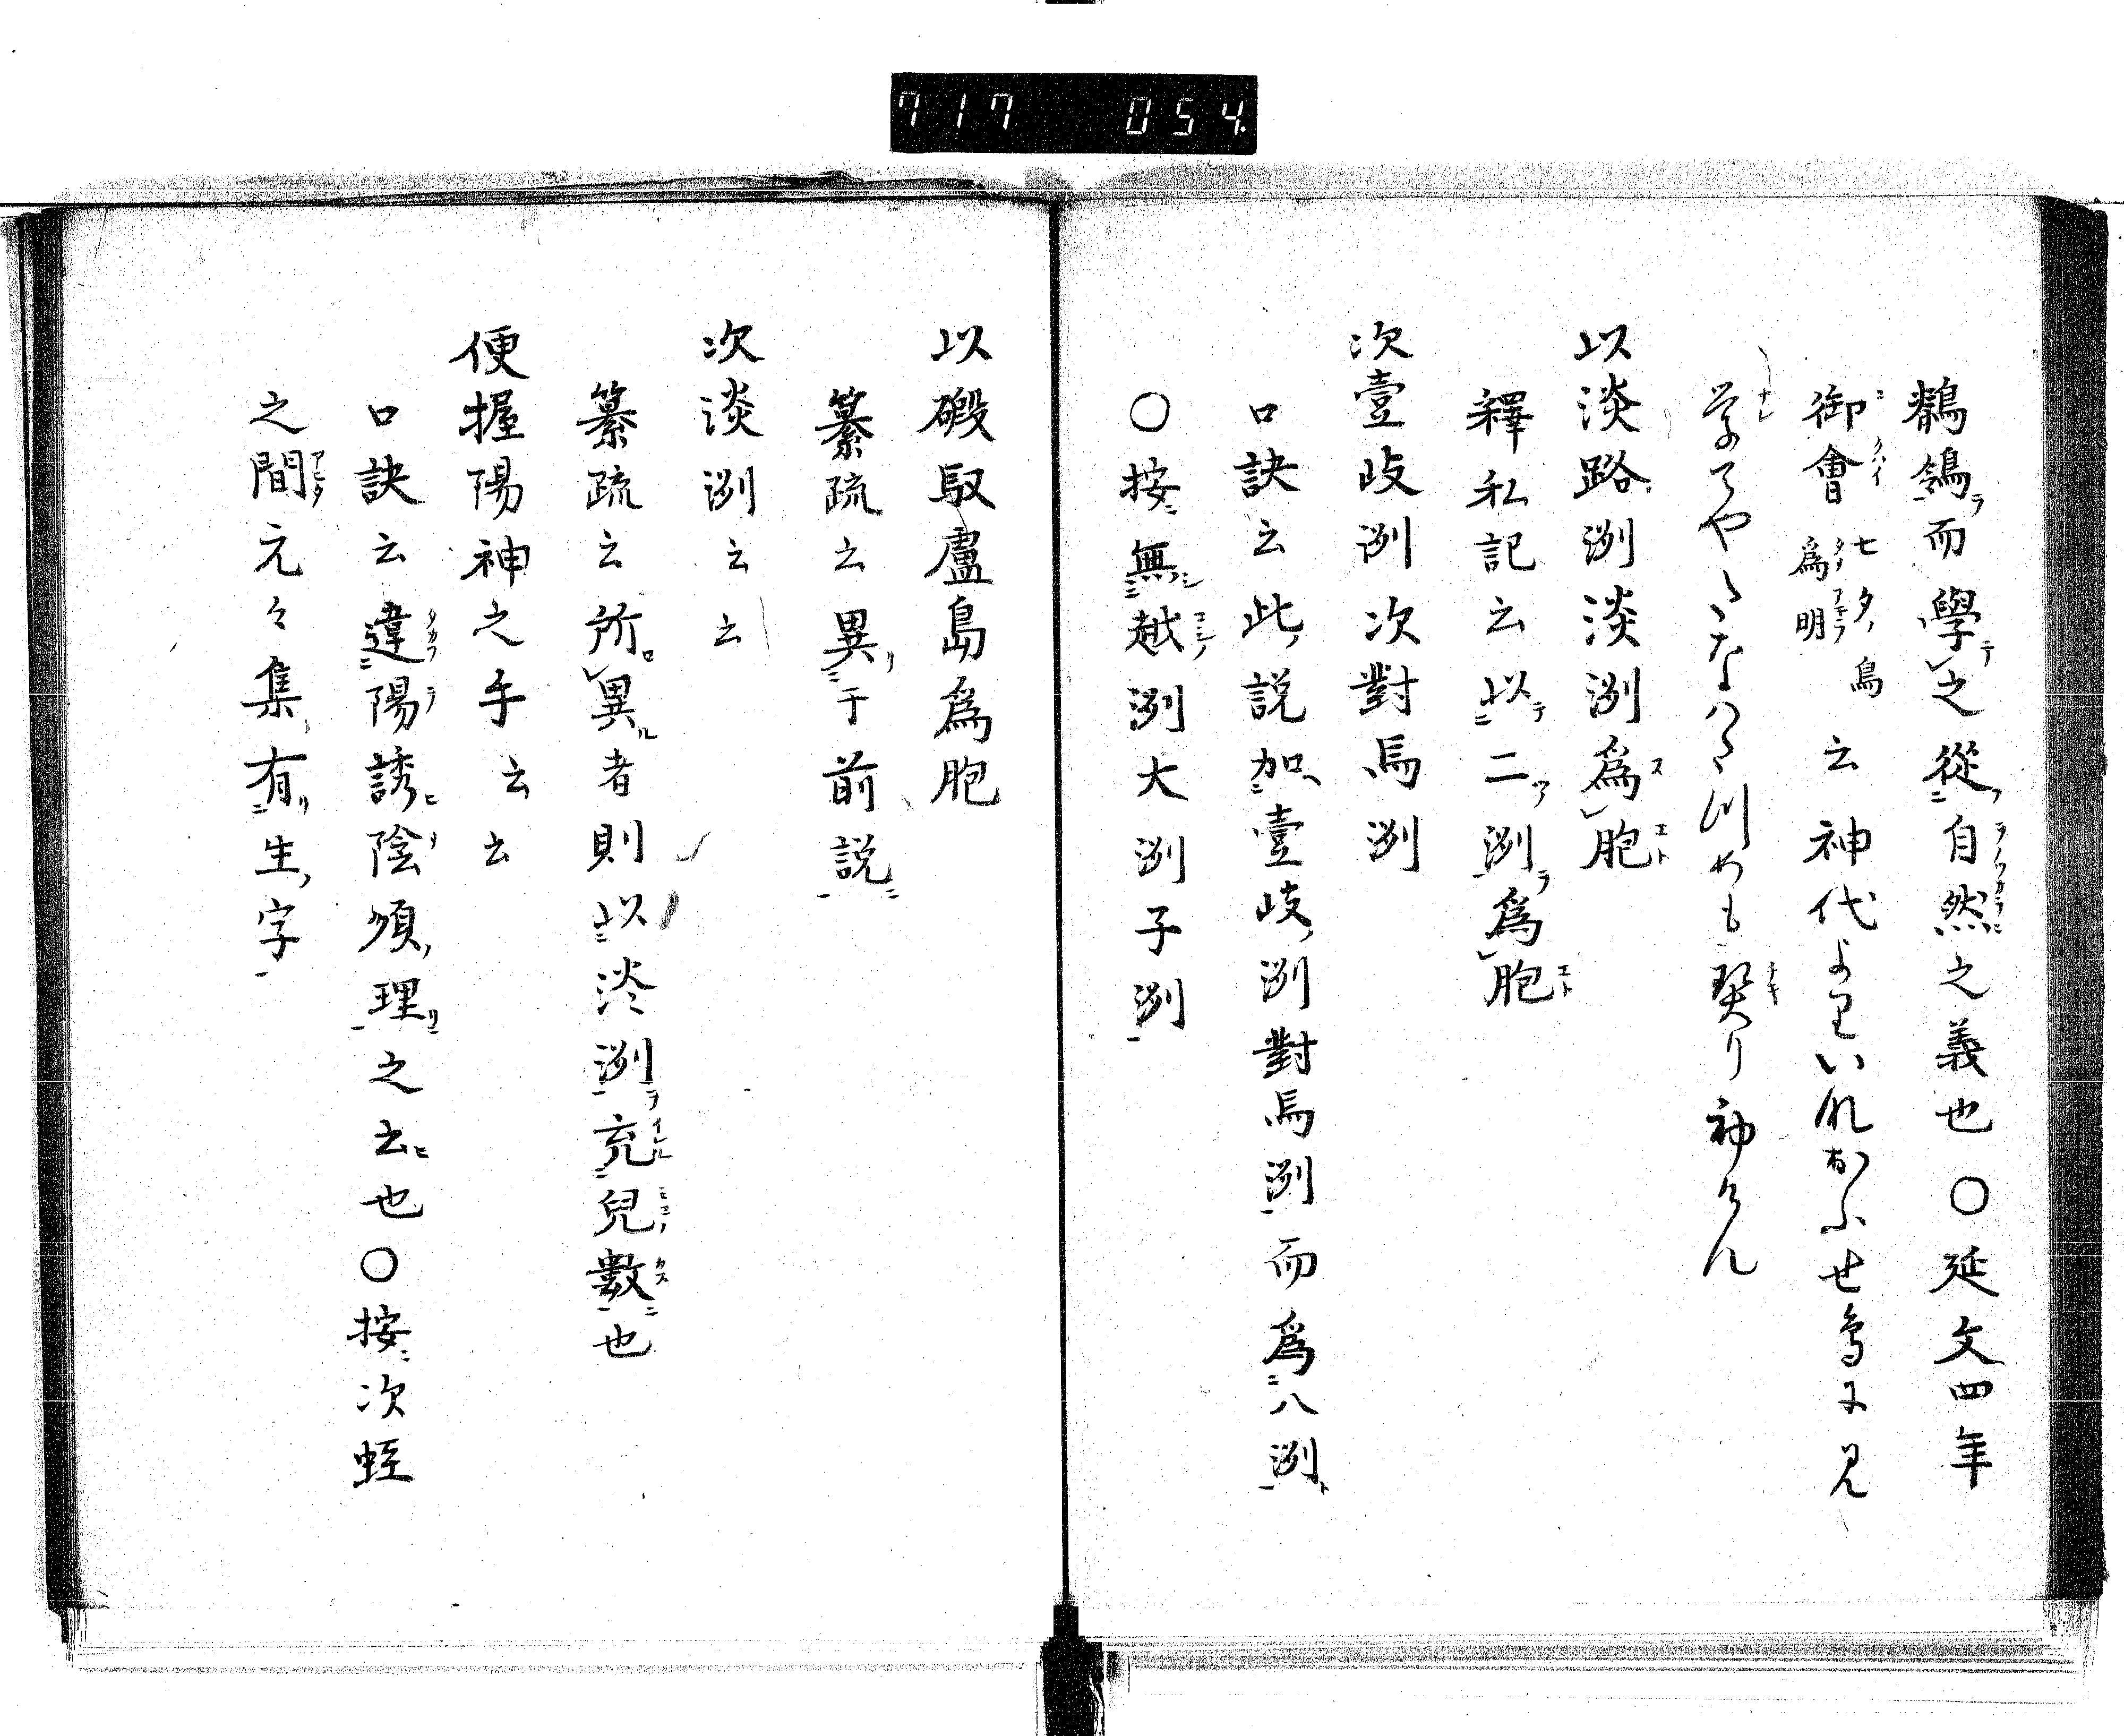 717 054
鶺鴒而學之從自然之義也○延文四年
御會七夕鳥爲明云神代よりいかおふせ鳥に見
学てやたなはた川めも契り初けん
以淡路洲淡洲爲胞
釋私記云以二洲爲胞
次壹岐洲次對馬洲
口訣云此説加壹岐洲對馬洲而爲八洲
○按無越洲大洲子洲
以磤馭盧島爲胞
纂疏云異于前説
次淡洲云云
纂疏云所異者則以淡洲充兒數也
便握陽神之手云云
口訣云違陽誘陰順理之去也○按次蛭
之間元々集有生字